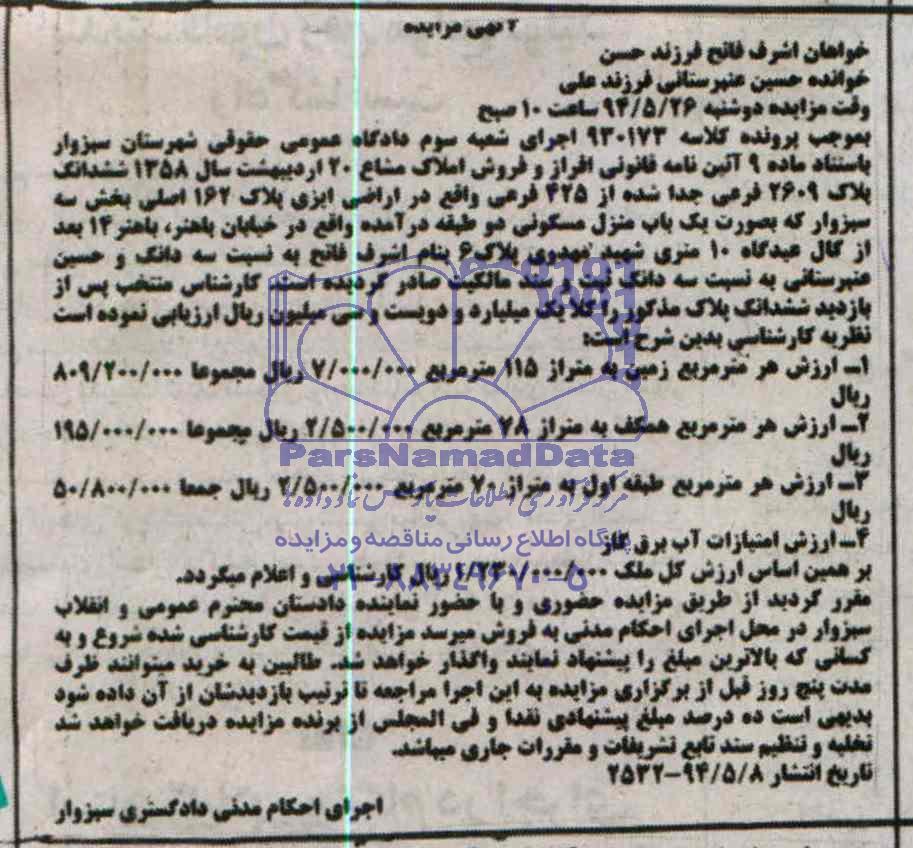 آگهی مزایده
خواهان اشرف فاتح فرزند حسن
خوانده حسین عنبرستانی فرزند علی
وقت مزایده دوشنبه ۹۴/۵/۲۶ ساعت ۱۰ صبح
بموجب پرونده کلاسه ۹۳۰۱۷۳ اجرای شعبه سوم دادگاه عمومی حقوقی شهرستان سبزوار
باستناد ماده ۹ آئین نامه قانونی افراز و فروش املاک مشاع ۲۰ اردیبهشت سال ۱۳۵۸ ششدانگ
پلاک ۲۶۰۹ فرعی جدا شده از ۴۲۵ فرعی واقع در اراضی ایزی پلاک ۱۶۲ اصلی بخش سه
سبزوار که بصورت یک باب منزل مسکونی دو طبقه درآمده واقع در خیابان باهنر، باهنر ۱۴ بعد
از کال عیدگاه ۱۰ متری شهید مهدوی پلاک ۶ بنام اشرف فاتح به نسبت سه دانگ و حسین
عنبرستانی به نسبت سه دانگ ثبت و سند مالکیت صادر گردیده است. کارشناس منتخب پس از
بازدید ششدانگ پلاک مذکور را کلا یک میلیارد و دویست و سی میلیون ریال ارزیابی نموده است
نظریه کارشناسی بدین شرح است:
۱ـ ارزش هر مترمربع زمین به متراژ ۱۱۵ مترمربع ۷/۰۰۰/۰۰۰ ریال مجموعا ۸۰۹/۲۰۰/۰۰۰
ریال
۲ـ ارزش هر مترمربع همکف به متراژ ۷۸ مترمربع ۲/۵۰۰/۰۰۰ ریال مجموعا ۱۹۵/۰۰۰/۰۰۰
ریال
۳ـ ارزش هر مترمربع طبقه اول به متراژ ۷۰ مترمربع ۲/۵۰۰/۰۰۰ ریال جمعا ۵۰/۸۰۰/۰۰۰
ریال
۴ـ ارزش امتیازات آب برق گاز
بر همین اساس ارزش کل ملک ۱/۲۳۰/۰۰۰/۰۰۰ ریال کارشناسی و اعلام میگردد.
مقرر گردید از طریق مزایده حضوری و با حضور نماینده دادستان محترم عمومی و انقلاب
سبزوار در محل اجرای احکام مدنی به فروش میرسد مزایده از قیمت کارشناسی شده شروع و به
کسانی که بالاترین مبلغ را پیشنهاد نمایند واگذار خواهد شد. طالبین به خرید میتوانند ظرف
مدت پنج روز قبل از برگزاری مزایده به این اجرا مراجعه تا ترتیب بازدیدشان از آن داده شود
بدیهی است ده درصد مبلغ پیشنهادی نقدا و فی المجلس از برنده مزایده دریافت خواهد شد
تخلیه و تنظیم سند تابع تشریفات و مقررات جاری میباشد.
تاریخ انتشار ۹۴/۵/۸-۲۵۳۲
اجرای احکام مدنی دادگستری سبزوار
ParsNamadData
مرکز فرآوری اطلاعات پارس نماد داده ها
پایگاه اطلاع رسانی مناقصه و مزایده
۰۲۱-۸۸۳۴۹۶۷۰-۵